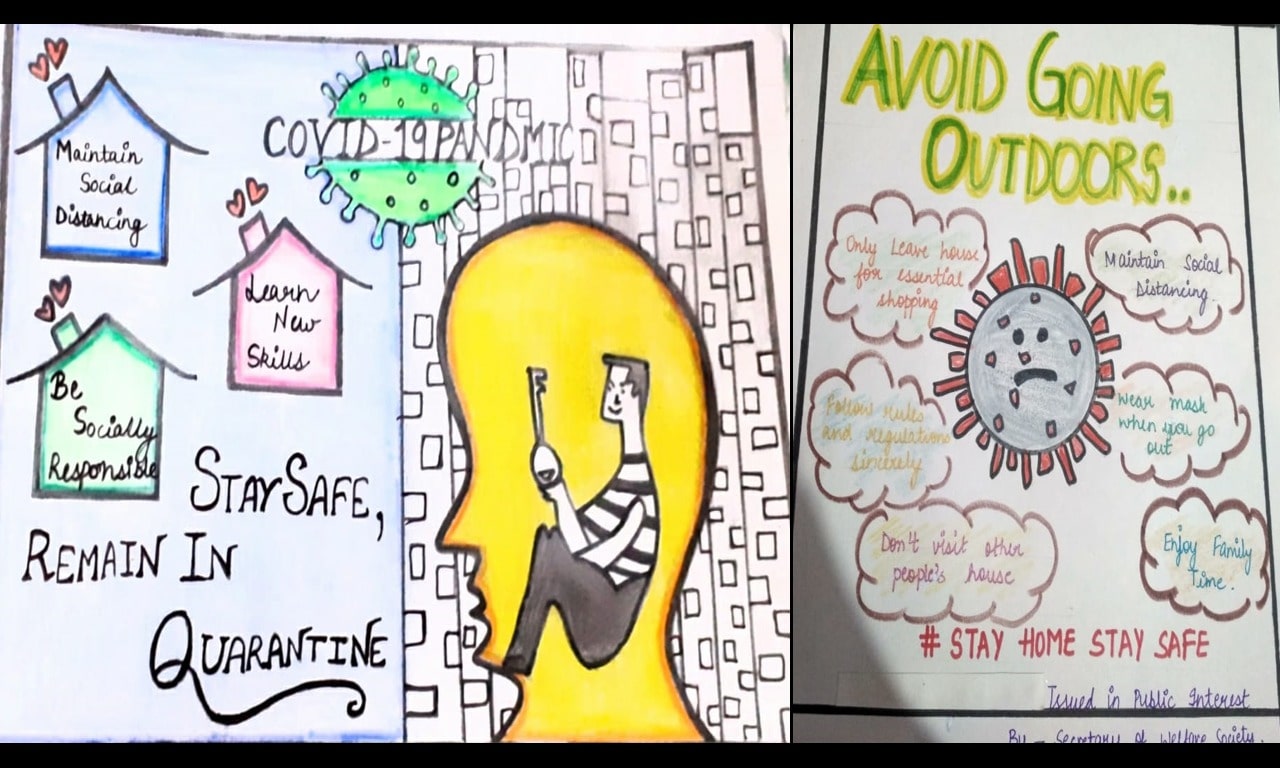 COVID-19 PANDMIC
Maintain
Social
Distancing
Learn
New
Skills
Be
Socially
Responsible
STAY SAFE,
REMAIN IN
QUARANTINE
AVOID GOING
OUTDOORS..
Only Leave house
for essential
shopping
Maintain Social
Distancing.
Follow rules
and regulations
sincerely
Wear mask
when you go
out
Don't visit other
people's house
Enjoy Family
Time.
# STAY HOME STAY SAFE
Issued in Public Interest
By - Secretary of Welfare Society.